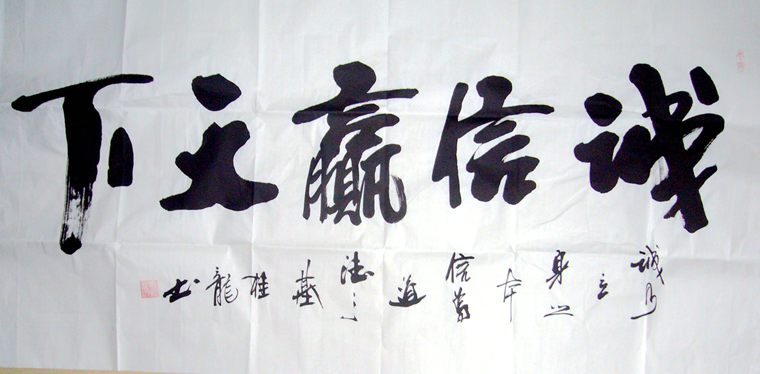 诚信赢天下
诚乃立身之本信为道德之基 龍书